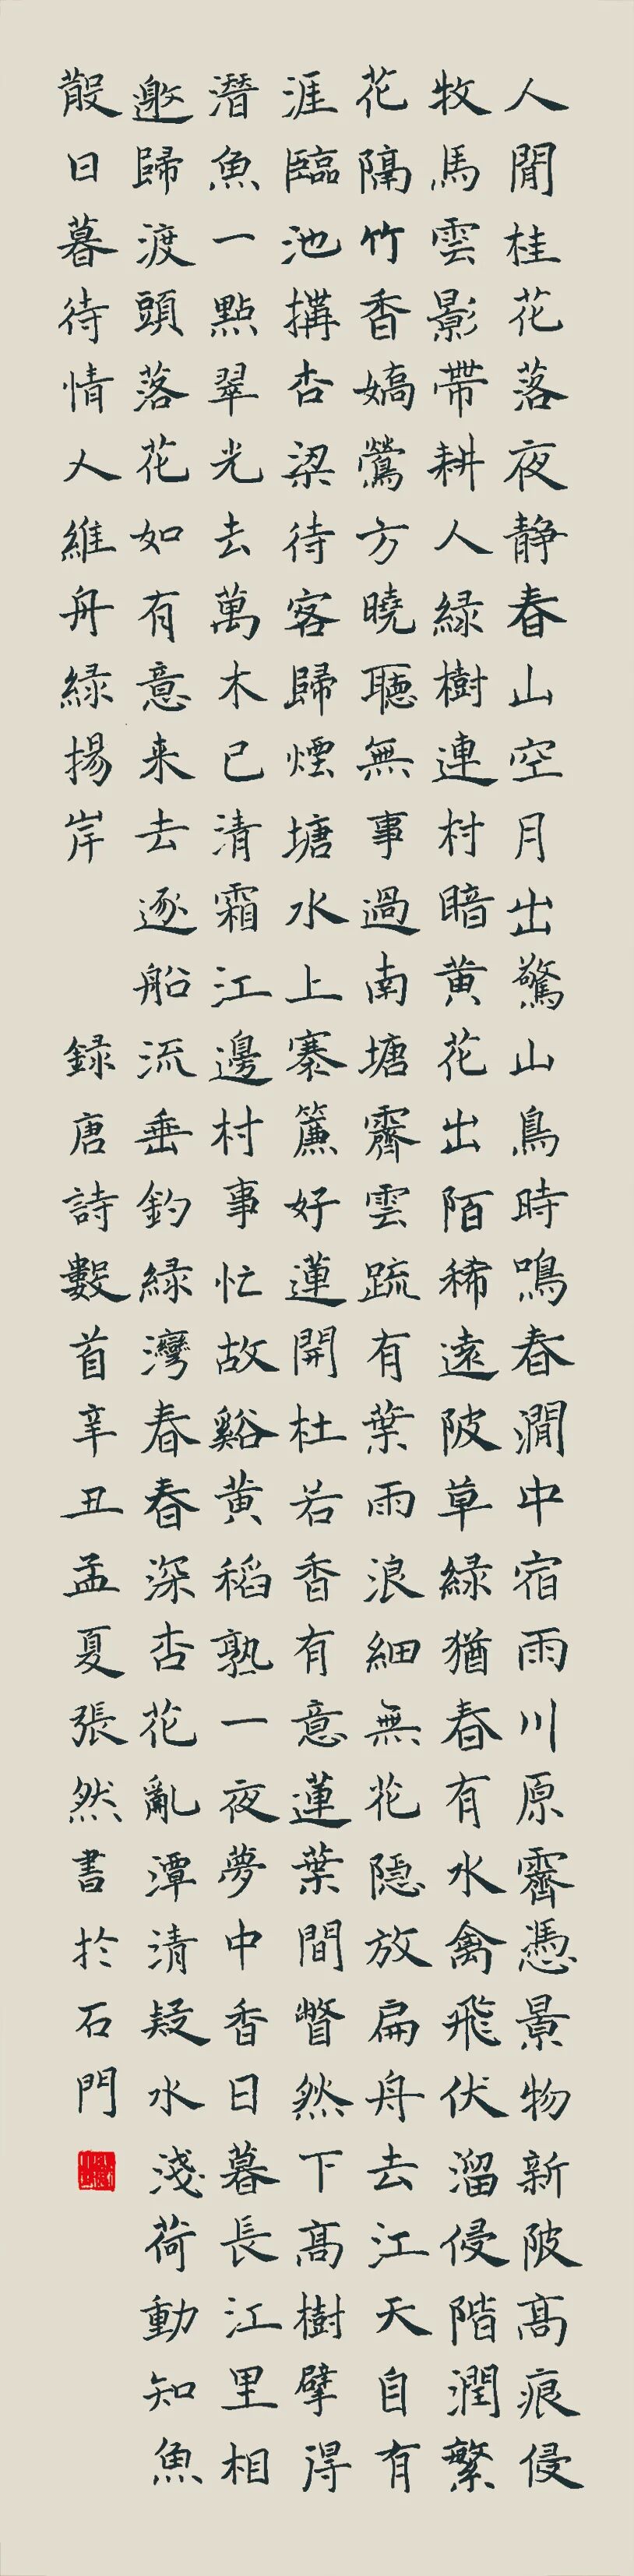 人閒桂花落夜静春山空月出驚山鳥時鳴春澗中宿雨川原霽憑景物新陂髙痕侵
牧馬雲影帶耕人緑樹連村暗黄花出陌稀遠陂草緑猶春有水禽飛伏溜侵階潤繁
花隔竹香嬌鶯方曉聽無事過南塘霽雲疏有葉雨浪細無花隱放扁舟去江天自有
涯臨池搆杏梁待客歸煙塘水上寨簾好蓮開杜若香有意蓮葉間瞥然下髙樹擘得
潛魚一點翠光去萬木已清霜江邊村事忙故谿黄稻熟一夜夢中香日暮長江里相
邀歸渡頭落花如有意来去逐船流垂釣緑灣春春深杏花亂潭清疑水淺荷動知魚
散日暮待情人維舟緑揚岸 録唐詩數首辛丑孟夏張然書於石門